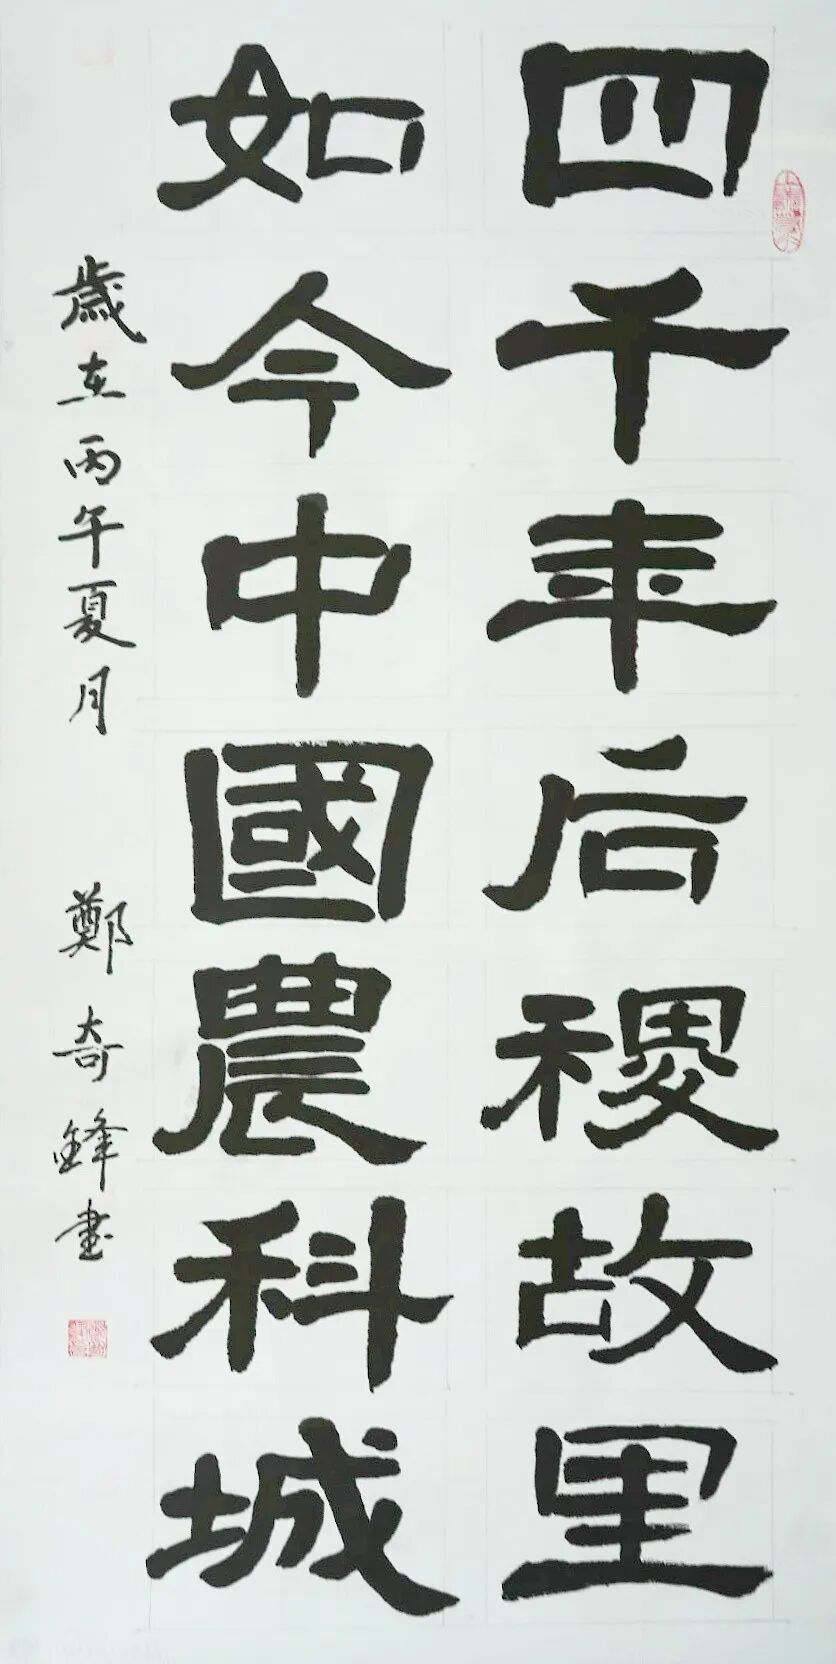 四千年后稷故里
如今中國農科城
歲在丙午夏月 鄭奇鋒書